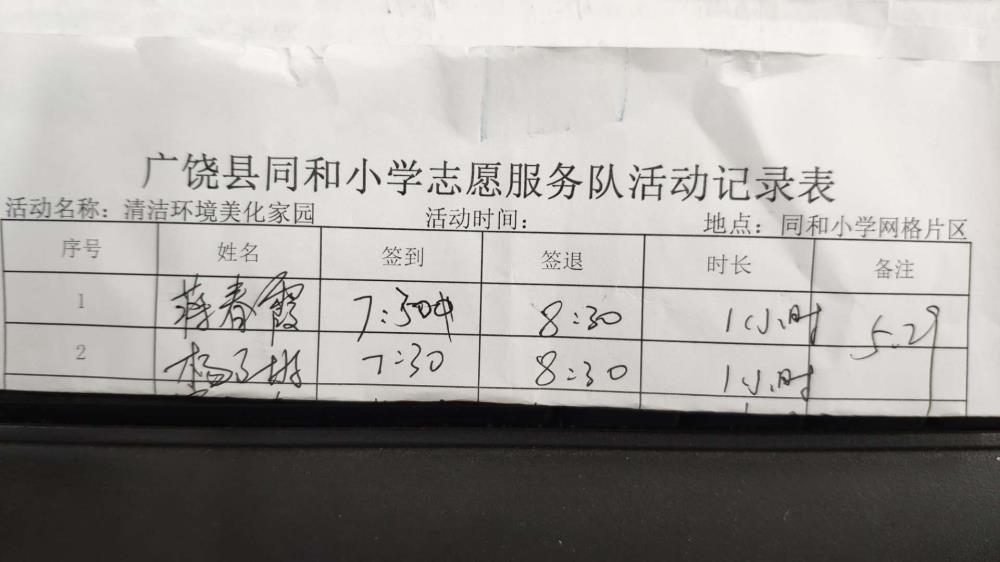 广饶县同和小学志愿服务队活动记录表
活动名称：清洁环境美化家园 活动时间： 地点：同和小学网格片区
序号 姓名 签到 签退 时长 备注
1 蒋春霞 7:30 8:30 1小时 5.29
2 杨 7:30 8:30 1小时